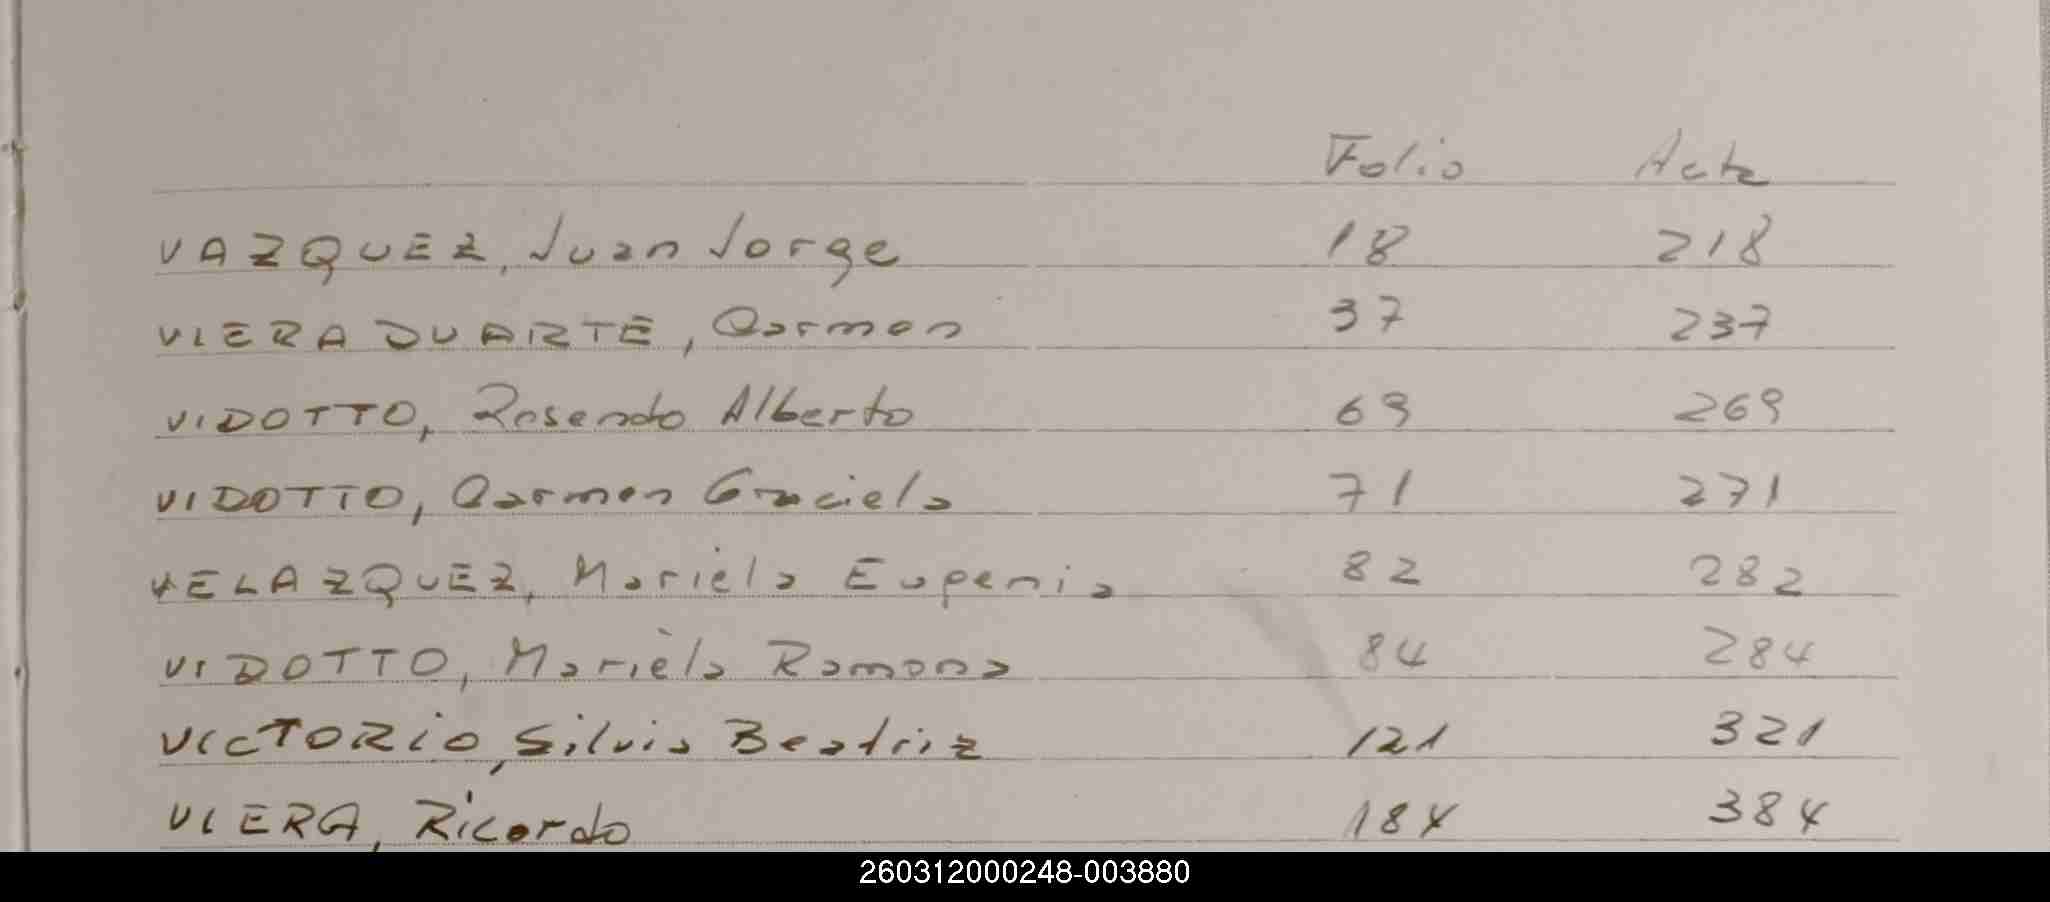 Folio Acta
VAZQUEZ, Juan Jorge 18 218
VIERA DUARTE, Carmen 37 237
VIDOTTO, Rosendo Alberto 69 269
VIDOTTO, Carmen Graciela 71 271
VELAZQUEZ, Mariela Eugenia 82 282
VIDOTTO, Marièla Ramona 84 284
VICTORIO, Silvia Beatriz 121 321
VIERA, Ricardo 184 384
260312000248-003880